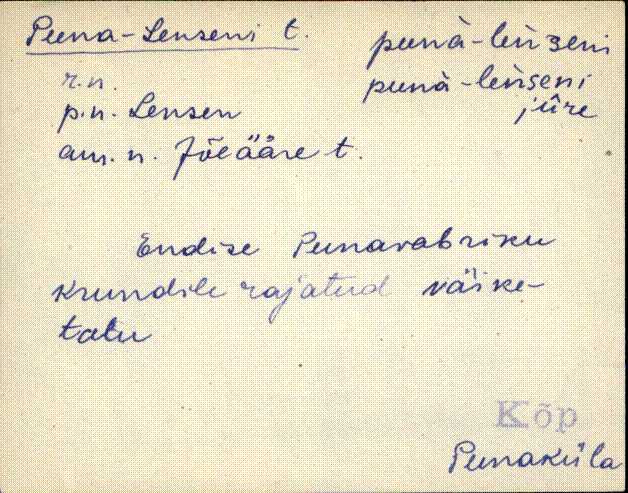 Puna-Lenseni t.
punà-lènseni
punà-lènseni
jûre
r.n.
p.n. Lensen
am. n. Jõeääre t.
Endise Punavabriku
krundile rajatud väike-
talu
Kõp
Punaküla